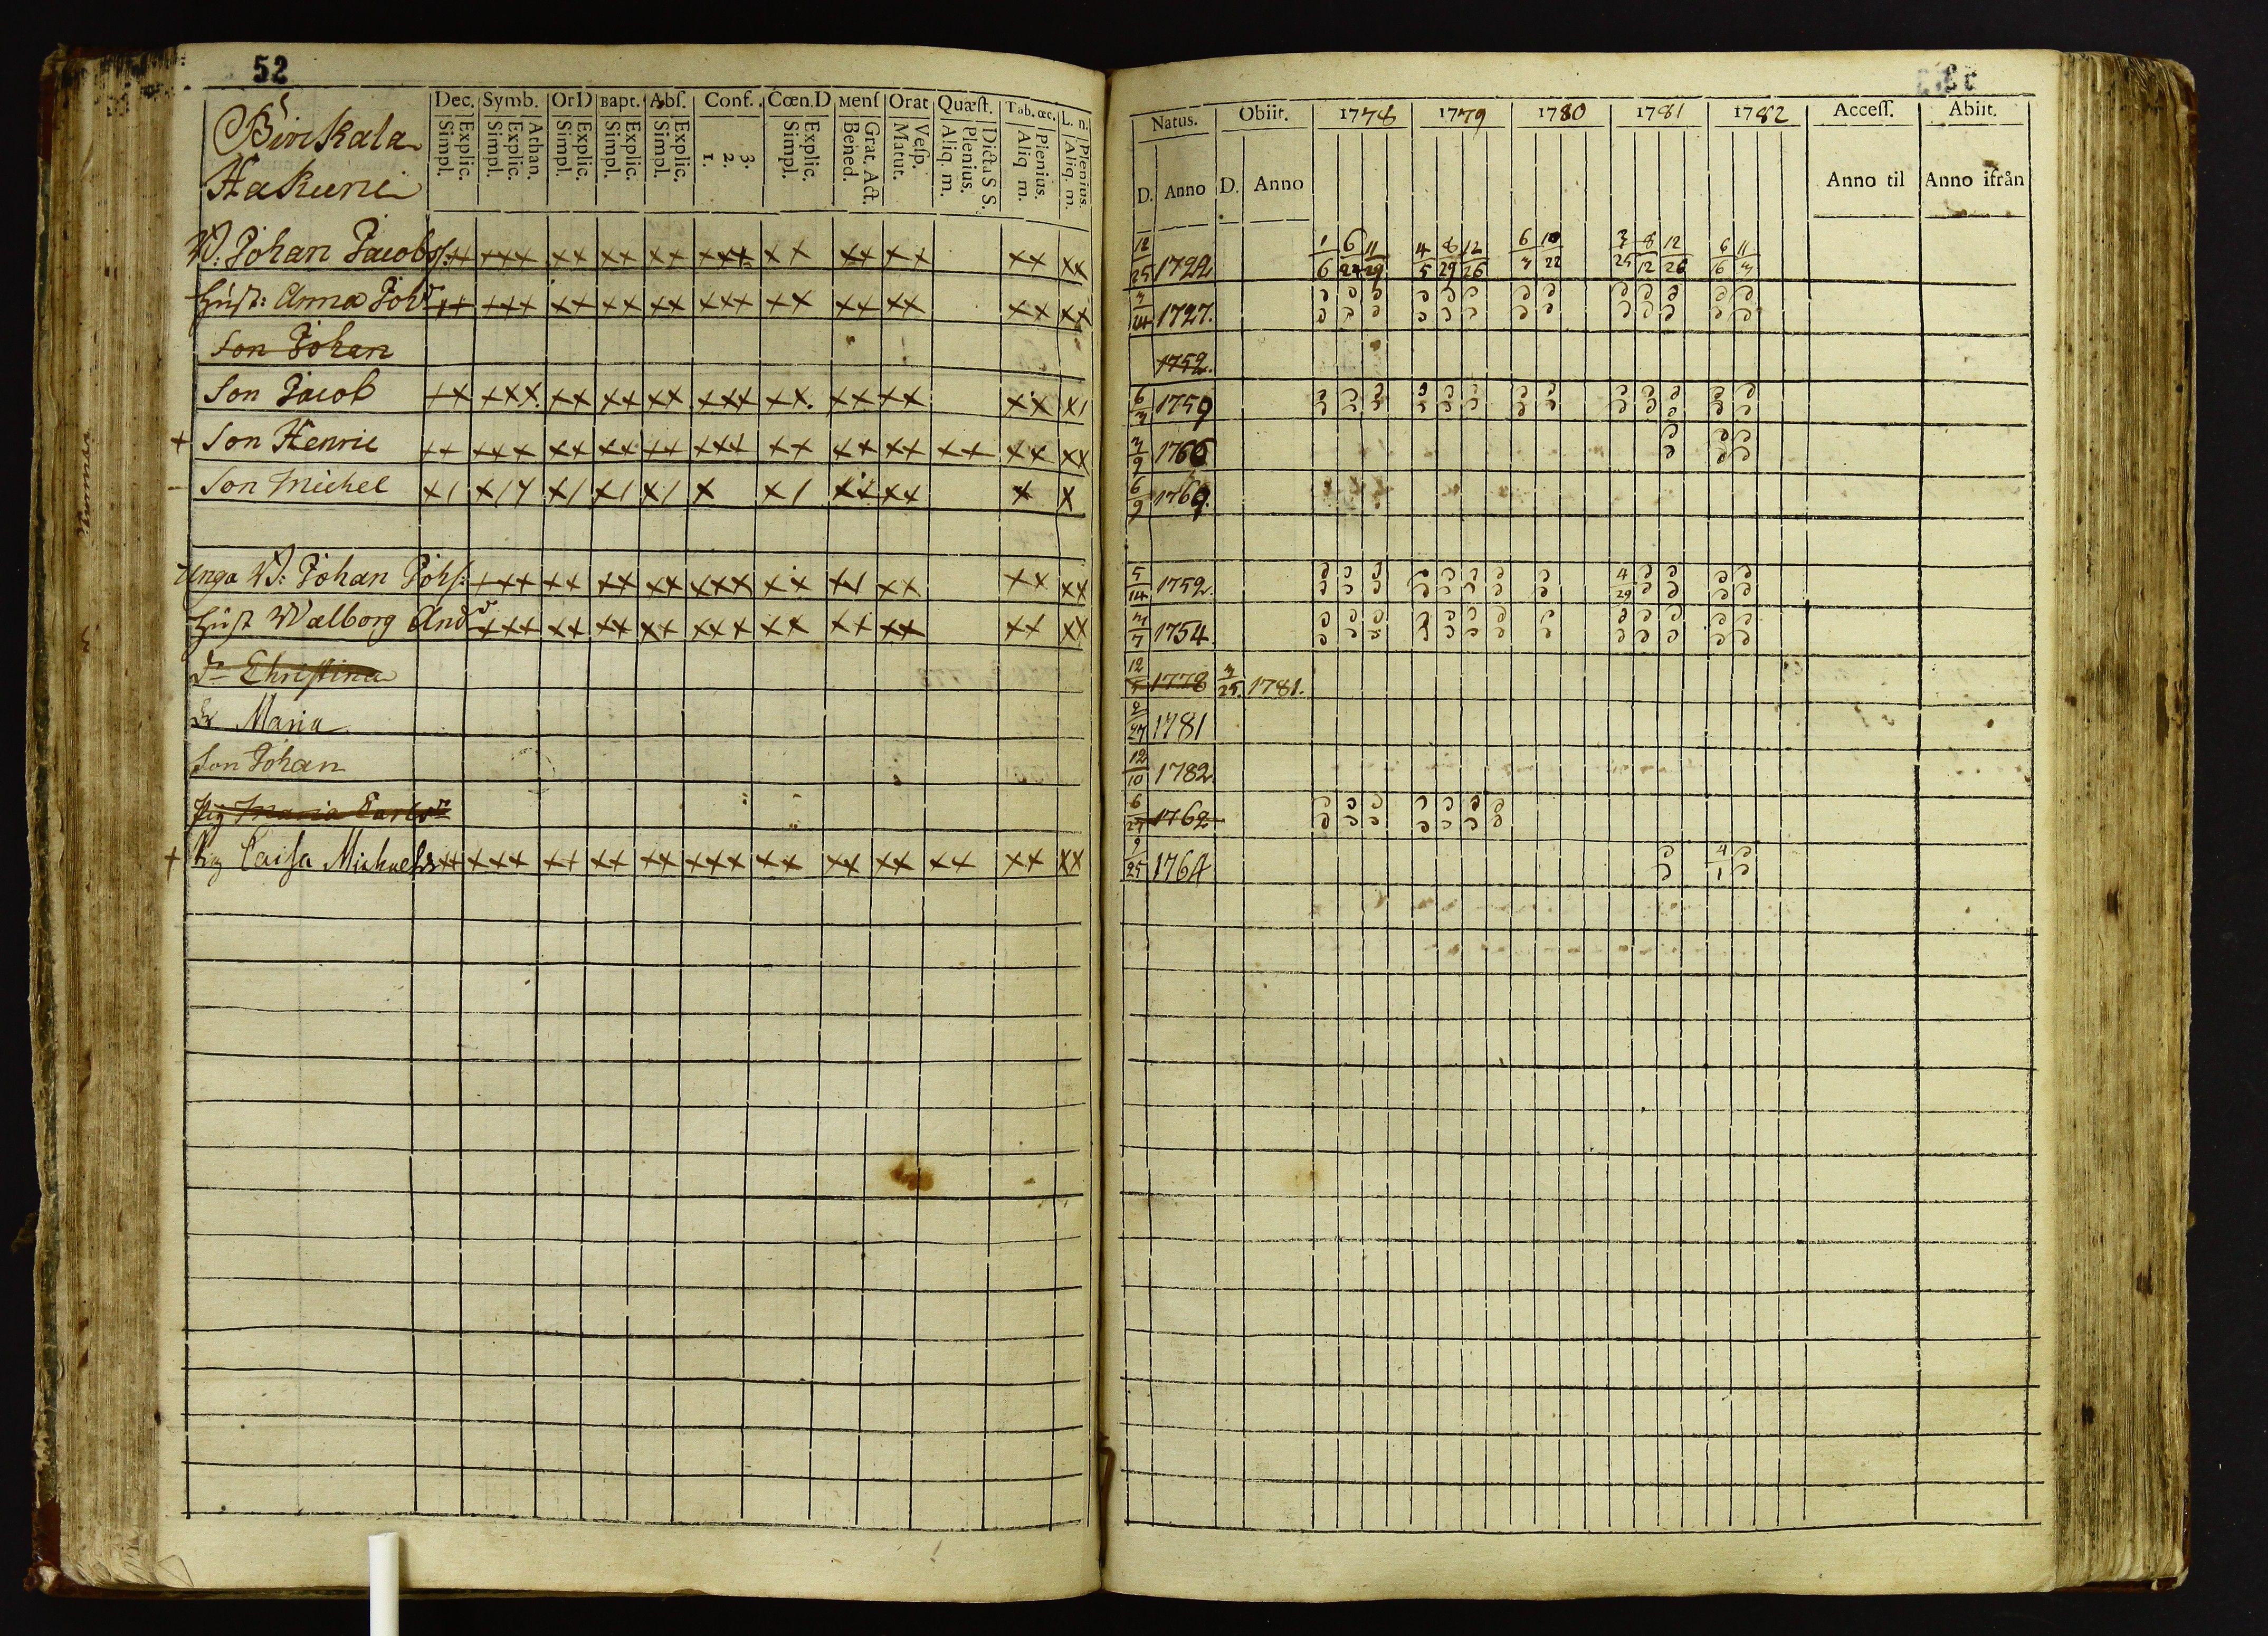 52
Dec. Symb. OrD Bapt. Abſ. Conf. Cœn.D Menſ Orat Quæſt. Tab.œc. L. n.
Simpl. Explic. Simpl. Explic. Athan. Simpl. Explic. Simpl. Explic. Simpl. Explic. 1. 2. 3. Simpl. Explic. Bened. Grat. Act. Matut. Veſp. Aliq. m. Plenius. Dicta S S. Aliq m. Plenius. Aliq. m. Plenius.
Hakuni
W: Johan Jacobſ: ++ +++ ×× ×× ×× +++ ×× ×× ×× ×× ××
Huſt: Anna Johdr ++ +++ ×× ×× ×× +++ ×× ×× ×× ×× ××
Son Johan
Son Jacob ×× +++ ×× ×× ×× +++ ×× ×× ×× ×× ×1
+ Son Henric ++ +++ ×× ×× ++ +++ ×× ×× ×× ×× ×× ××
- Son Michel ×1 ×1 ×1 ×1 × ×1 ×× ×× × ×
Unga W: Johan Johſ: +++ ×× ×× ×× ××× ×× ×× ×× ×× ××
Huſt Walborg Anddr +++ ×× ×× ×× ××× ×× ×× ×× ×× ××
Dr Chriſtina
Dr Maria
Son Johan
Pig Maria Carlsdr
+ Pig Caiſa Michaels ++ +++ ×× ×× ×× +++ ×× ×× ×× ×× ×× ××
Natus. Obiit. 1778 1779 1780 1781 1782 Acceſſ. Abiit.
D. Anno D. Anno Anno til Anno ifrån
12/25 1722 1/6 6/24 11/29 4/5 8/29 12/26 6/3 10/22 3/25 8/12 12/26 6/16 11/3
3/14 1727.
1752.
6/3 1759
3/9 1766
6/9 1769.
5/14 1752. 4/29
3/7 1754.
12/5 1778 3/25. 1781.
2/27 1781
12/10 1782.
6/27 1762
9/25 1764 4/1